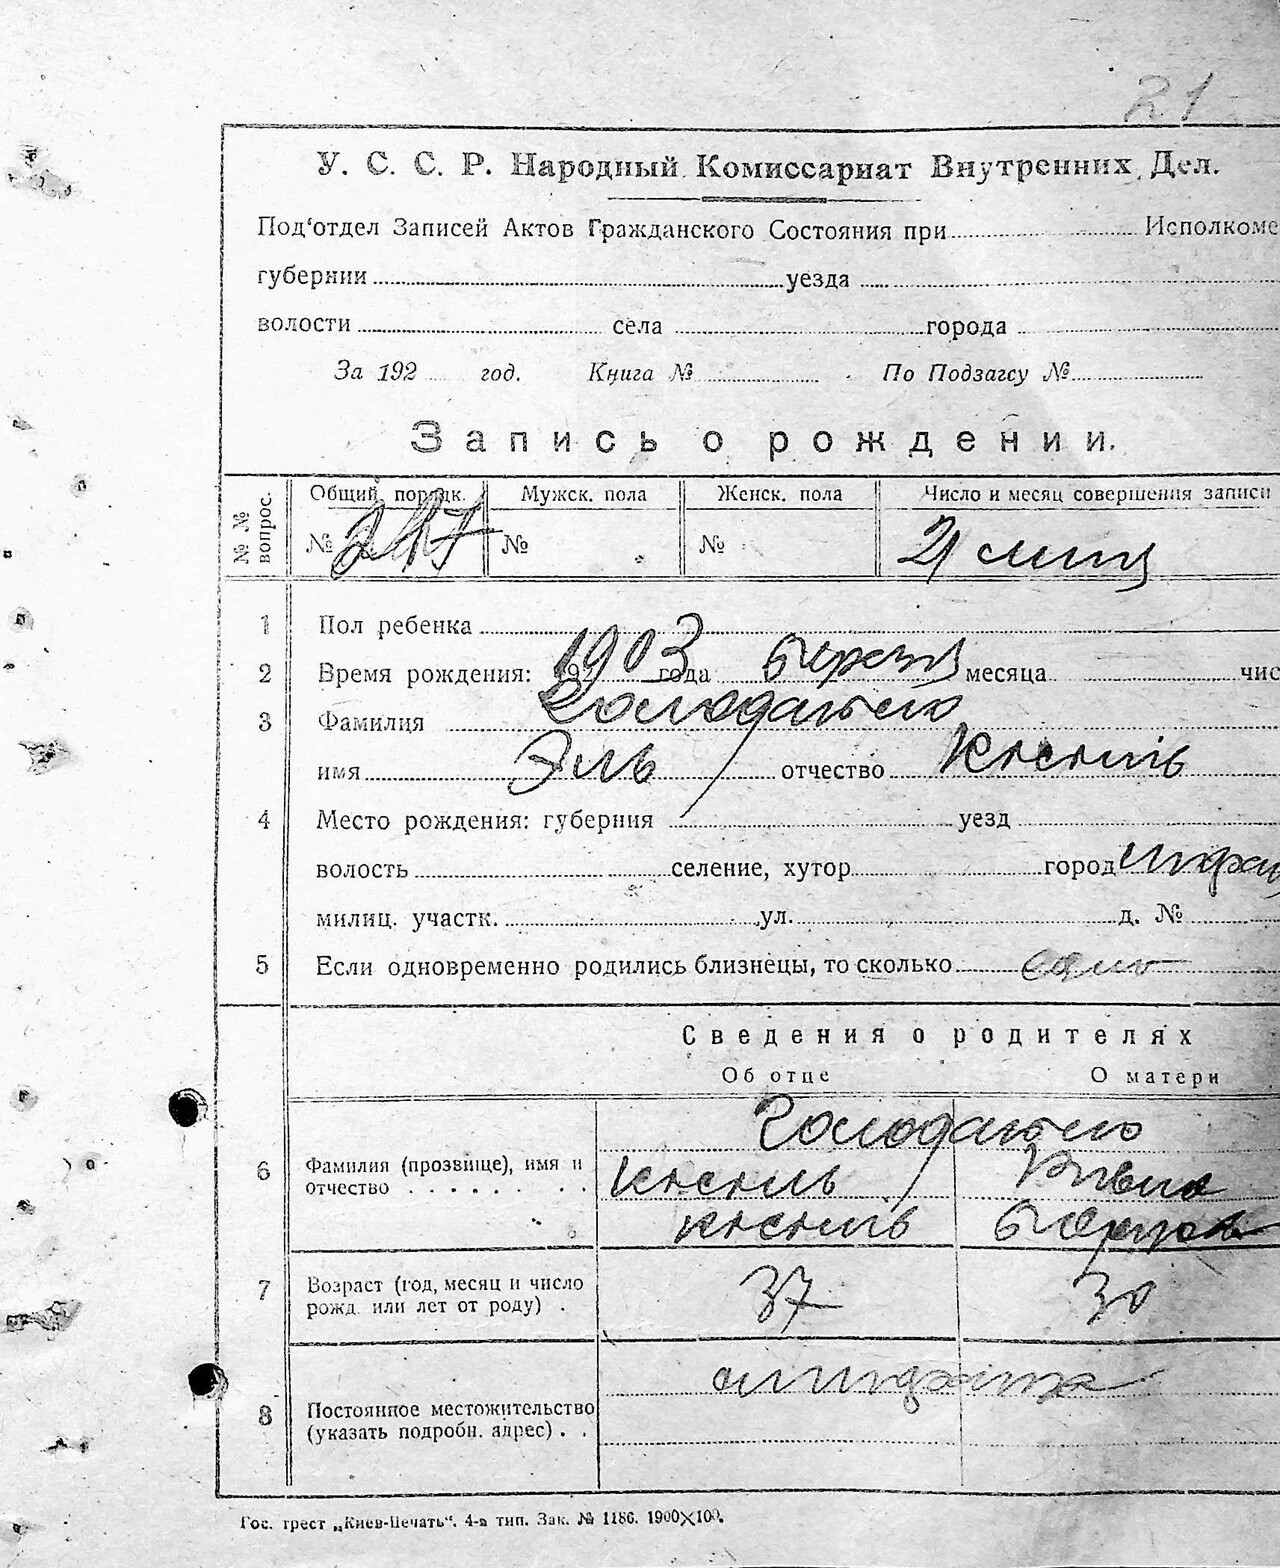 21
У. С. С. Р. Народный Комиссариат Внутренних Дел.
Под'отдел Записей Актов Гражданского Состояния при Исполкоме
губернии уезда
волости села города
За 192 год. Книга № По Подзагсу №
Запись о рождении.
№ № вопрос. Общий порядк. Мужск. пола Женск. пола Число и месяц совершения записи
№ 217 № № 21
1 Пол ребенка
2 Время рождения: 1903 года месяца чис
3 Фамилия
имя Эль отчество Кисиль
4 Место рождения: губерния уезд
волость селение, хутор город
милиц. участк. ул. д. №
5 Если одновременно родились близнецы, то сколько
Сведения о родителях
Об отце О матери
6 Фамилия (прозвище), имя и
отчество . . . . . . . . Кисиль
Кисиль
7 Возраст (год, месяц и число
рожд. или лет от роду) . 37 30
8 Постоянное местожительство
(указать подробн. адрес) . .
Гос. трест „Киев-Печать“. 4-а тип. Зак. № 1186. 1900×100.